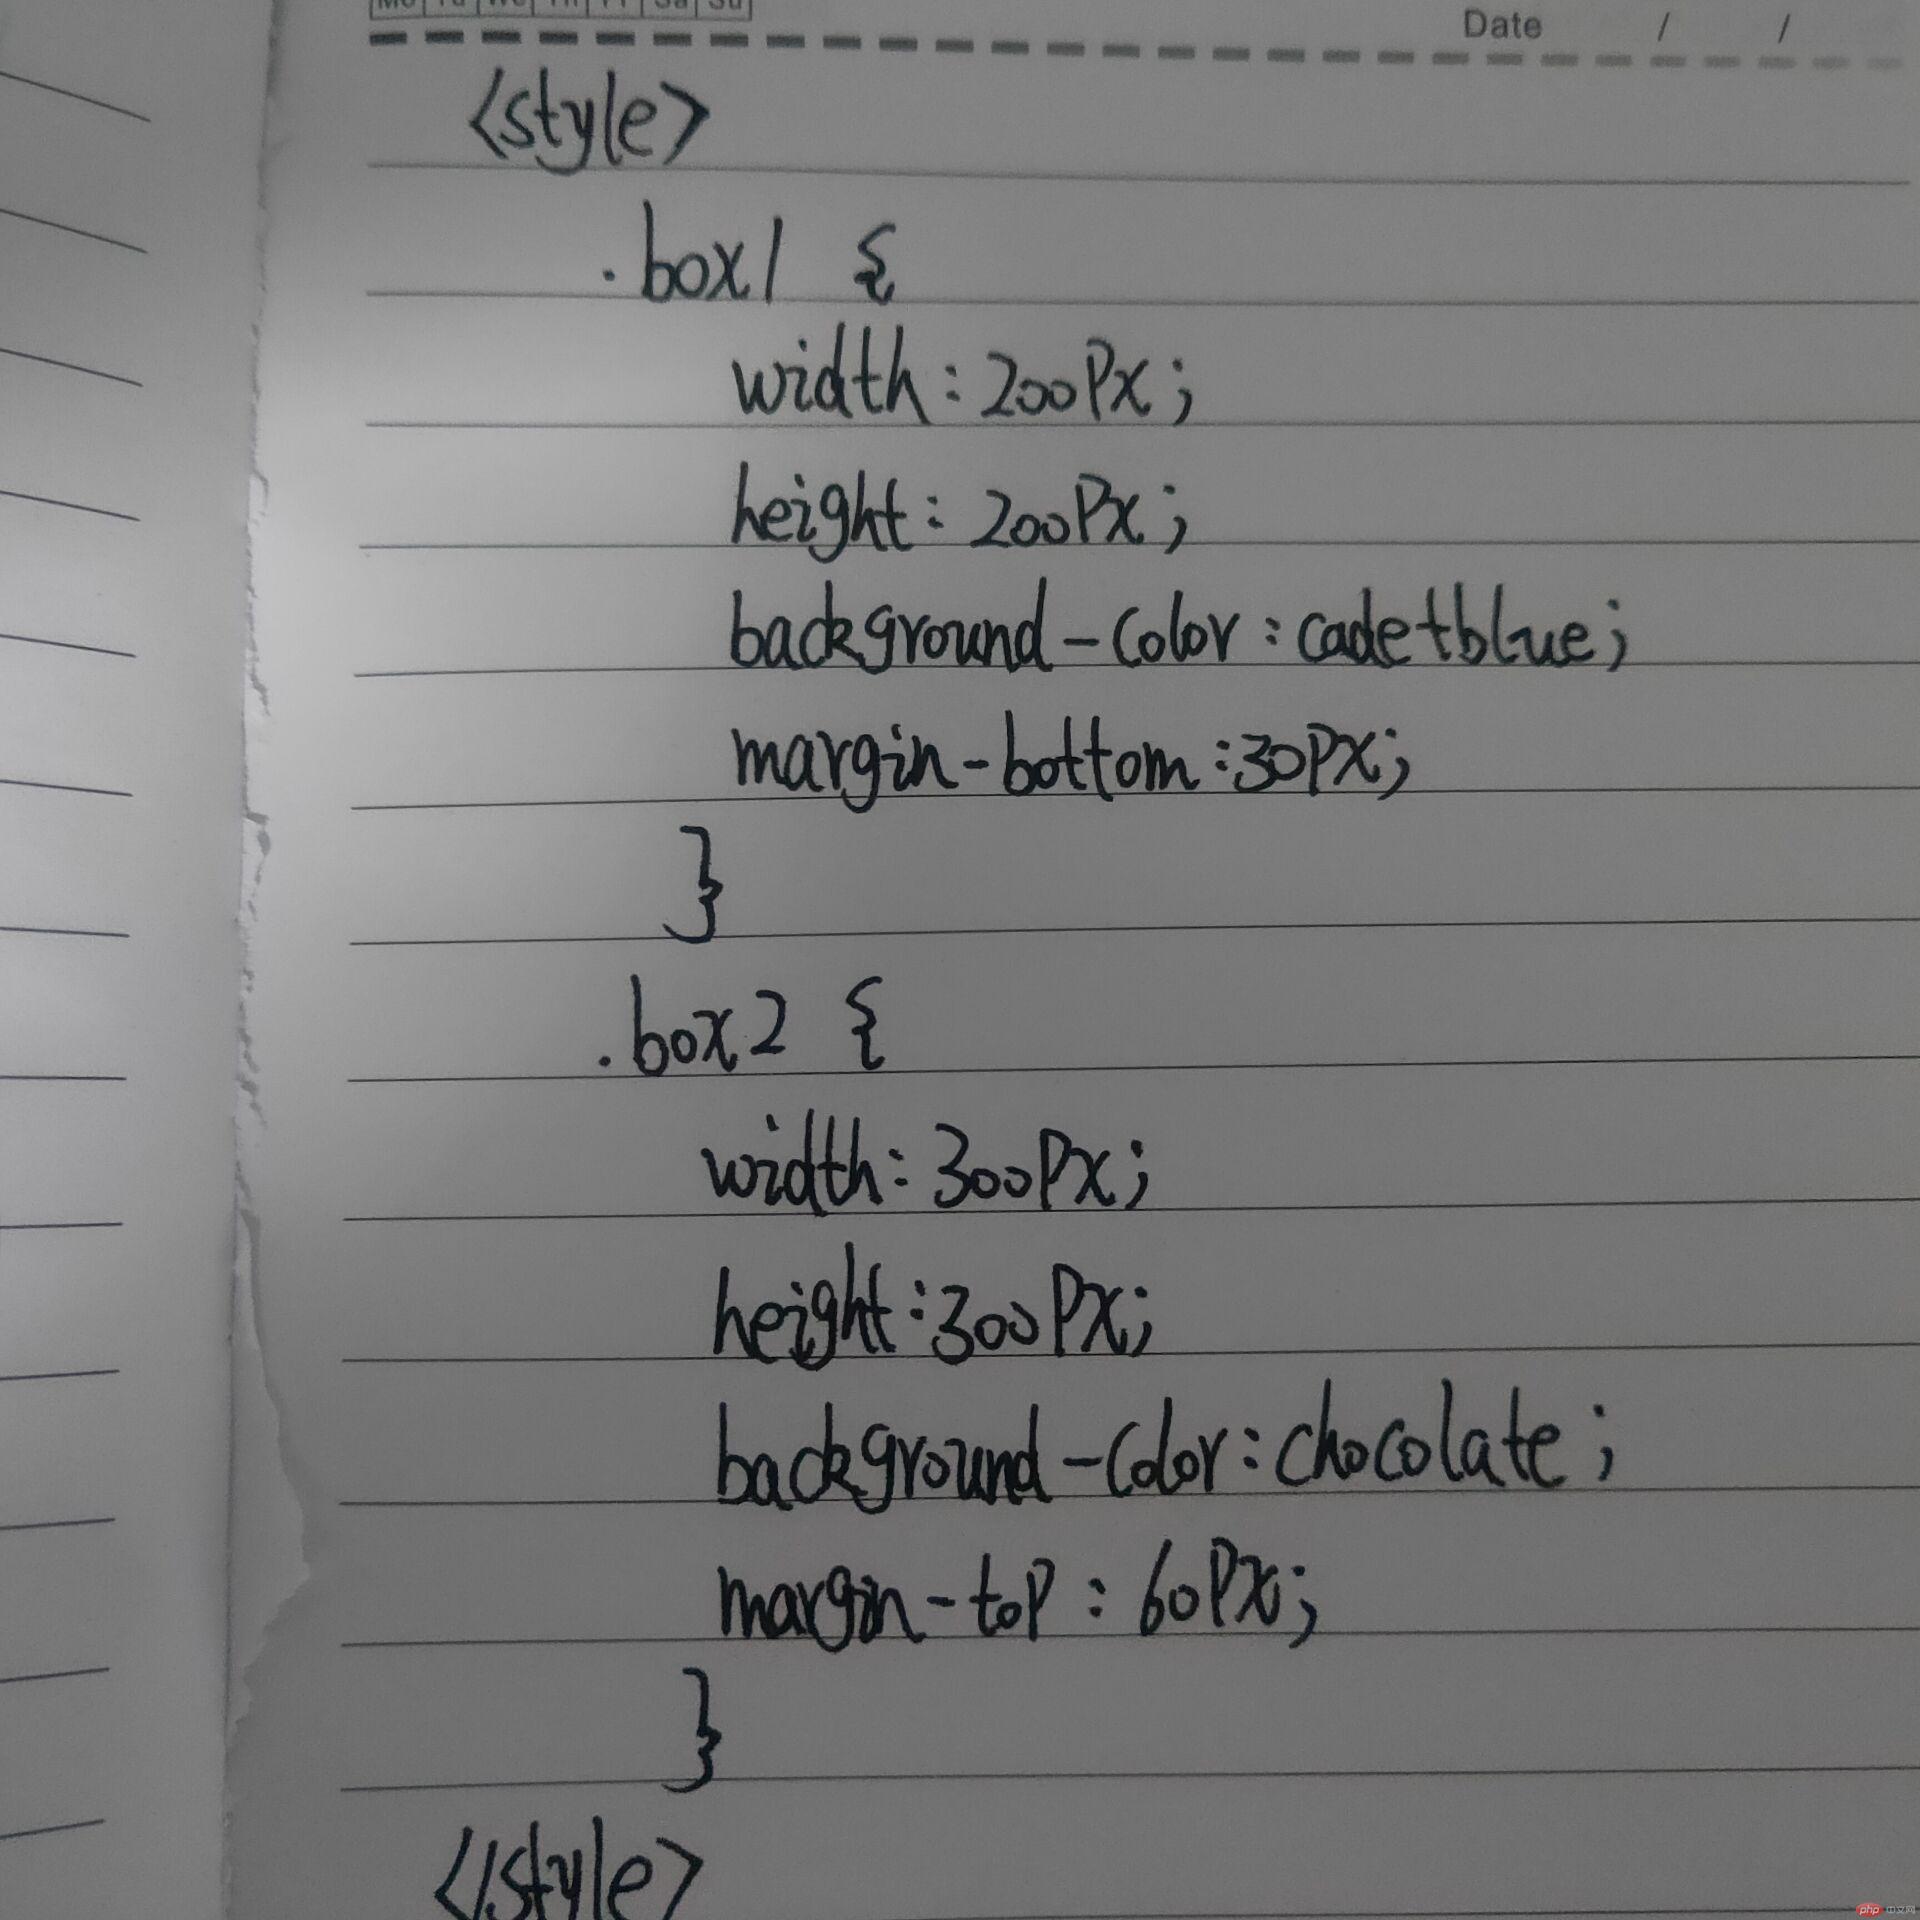 Mo Tu We Th Fr Sa Su
Date / /
<style>
.box1 {
width: 200Px;
height: 200Px;
background-color: cadetblue;
margin-bottom: 30Px;
}
.box2 {
width: 300Px;
height: 300Px;
background-color: chocolate;
margin-top: 60Px;
}
</style>
php 中文网